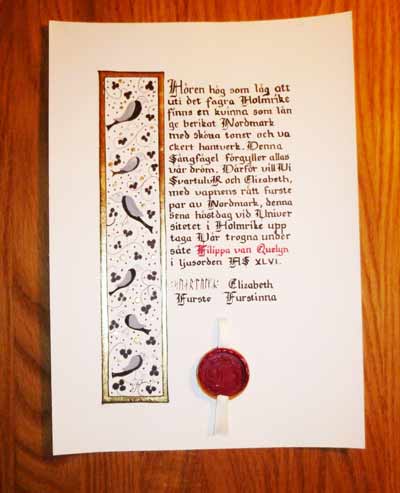 Hören hög som låg att
uti det fagra Holmrike
finns en kvinna som län
ge berikat Nordmark
med sköna toner och va
ckert hantverk. Denna
Sångfågel förgyller allas
vår dröm. Därför vill Vi
SvartulvR och Elizabeth,
med vapnens rätt furste
par av Nordmark, denna
sena höstdag vid Univer
sitetet i Holmrike upp
taga Vår trogna under
såte Filippa van Quelyn
i ljusorden AS XLVI.
Elizabeth
Furste Furstinna